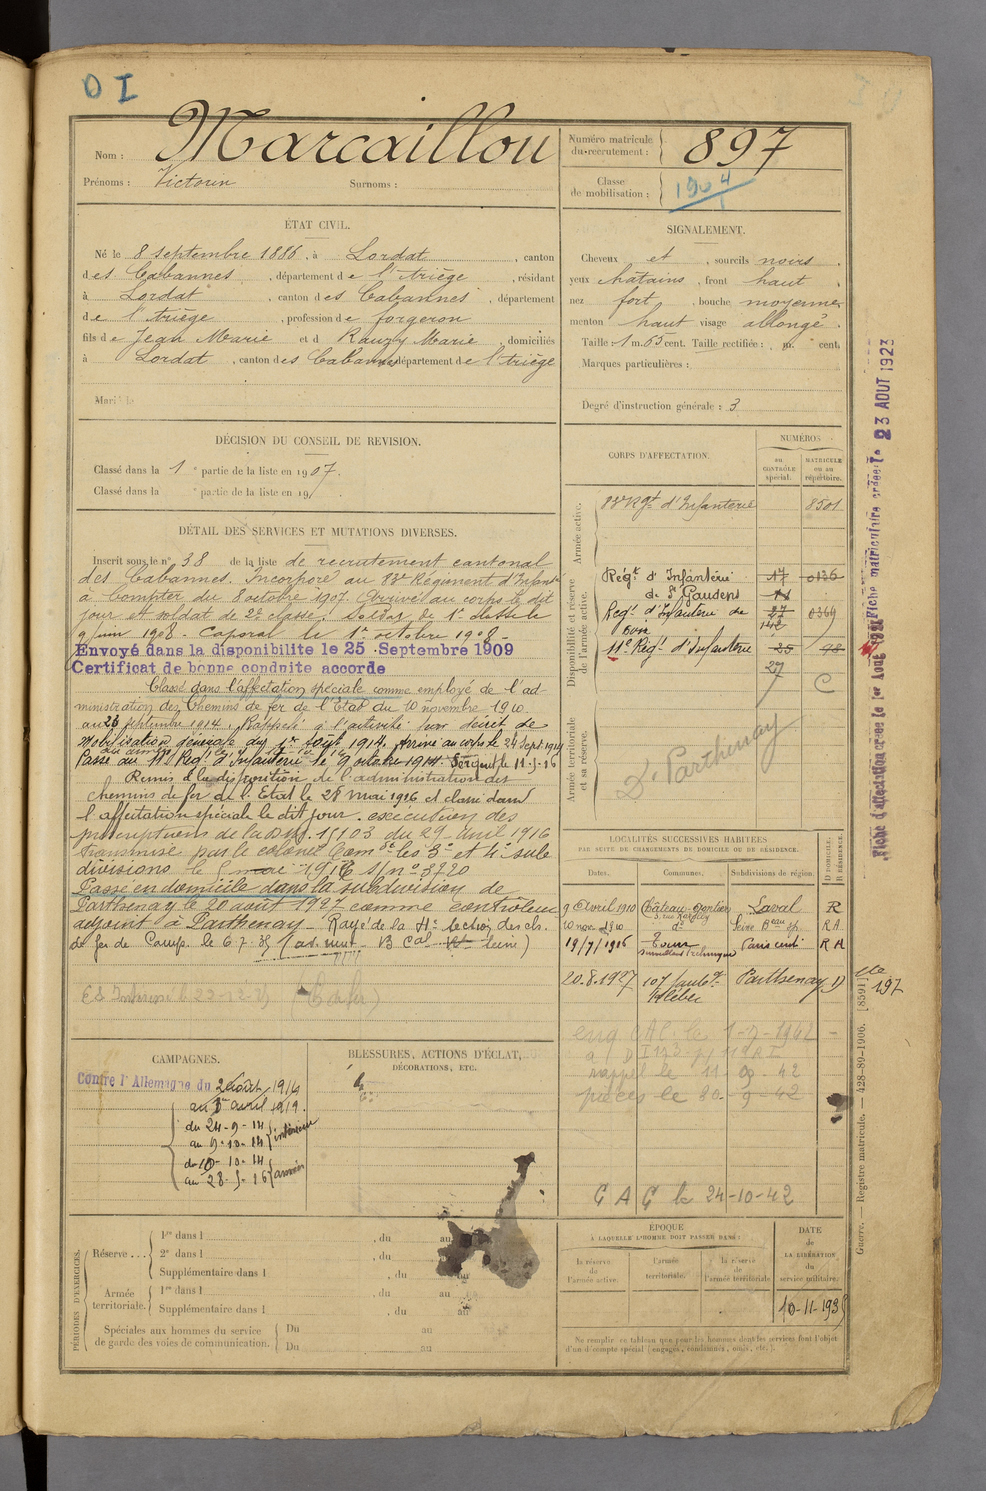 O I
Nom : Marcaillou
Prénoms : Victorin Surnoms :
Numéro matricule du recrutement : 897
Classe de mobilisation : 1904
ÉTAT CIVIL.
Né le 8 septembre 1886, à Lordat, canton
des Cabannes, département de l'Ariège, résidant
à Lordat, canton des Cabannes, département
de l'Ariège, profession de forgeron
fils de Jean Marie et de Rauzy Marie, domiciliés
à Lordat, canton des Cabannes département de l'Ariège
Marié le
SIGNALEMENT.
Cheveux et, sourcils noirs
yeux châtains, front haut,
nez fort, bouche moyenne,
menton haut visage allongé.
Taille : 1 m. 63 cent. Taille rectifiée : m. cent.
Marques particulières :
Degré d'instruction générale : 3
DÉCISION DU CONSEIL DE REVISION.
Classé dans la 1e partie de la liste en 1907.
Classé dans la e partie de la liste en 19
DÉTAIL DES SERVICES ET MUTATIONS DIVERSES.
Inscrit sous le n° 38 de la liste de recrutement cantonal
des Cabannes. Incorporé au 83e Régiment d'Infantie
à compter du 8 octobre 1907. Arrivé au corps le dit
jour et soldat de 2e classe. Soldat de 1e classe le
9 juin 1908. Caporal le 1er octobre 1908.
Envoyé dans la disponibilite le 25 Septembre 1909
Certificat de bonne conduite accorde
Classé dans l'affectation spéciale comme employé de l'ad-
ministration des Chemins de fer de l'Etat du 10 novembre 1910.
au 23 septembre 1914. Rappelé à l'activité par décret de
mobilisation générale du 1er août 1914. Arrivé au corps le 24 Sept. 1914
Passé au 11e Régt d'Infanterie le 9 octobre 1914. Sergent le 11-5-16
Remis à la disposition de l'administration des
chemins de fer de l'Etat le 28 mai 1916 et classé dans
l'affectation spéciale le dit jour. exécution des
prescriptions de la D.M. 15103 du 29 avril 1916
transmise par le colonel Comdt les 3e et 4e sub
divisions le mai 1916 s/ n° 3720
Passé en domicile dans la subdivision de
Parthenay le 20 août 1927 comme contrôleur
adjoint à Parthenay - Rayé de la 4e section des ch.
de fer de Camp. le 6.7.35
CORPS D'AFFECTATION.
NUMÉROS
au CONTRÔLE spécial.
MATRICULE ou au répertoire.
Armée active.
83e Rgt d'Infanterie 8501
Disponibilité et réserve de l'armée active.
Régt d'Infanterie 17 0126
de St Gaudens
Regt d'Infanterie de 27 0369
142
11e Régt d'Infanterie 25 98
27
C
Armée territoriale et sa réserve.
Dr Parthenay
LOCALITÉS SUCCESSIVES HABITÉES
PAR SUITE DE CHANGEMENTS DE DOMICILE OU DE RÉSIDENCE.
Dates. Communes. Subdivisions de région. D DOMICILE. R RÉSIDENCE.
9 Avril 1910 Château-Gontier Laval R
10 nov. 1910 do Seine Beau sp. R A
19/7/1916 Tours Paris cent R A
surveillant technique
20.8.1927 107 faubg Kléber Parthenay D
enq
rappel le 11-09-42
pieces le 30-9-42
C A G le 24-10-42
CAMPAGNES.
Contre l'Allemagne du 2 août 1914
au 3 avril 1919.
du 24-9-14
au 9-10-14 intérieur
du 10-10-14
au 28-5-16 armées
BLESSURES, ACTIONS D'ÉCLAT,
DÉCORATIONS, ETC.
PÉRIODES D'EXERCICES.
Réserve ... 1re dans l , du au
2e dans l , du au
Supplémentaire dans l , du au
Armée territoriale. 1re dans l , du au
Supplémentaire dans l , du au
Spéciales aux hommes du service de garde des voies de communication. Du au
Du au
ÉPOQUE
À LAQUELLE L'HOMME DOIT PASSER DANS :
la réserve de l'armée active.
l'armée territoriale.
la réserve de l'armée territoriale
DATE de LA LIBÉRATION du service militaire.
10-11-1935
Ne remplir ce tableau que pour les hommes dont les services font l'objet
d'un décompte spécial (engagés, condamnés, omis, etc.).
Fiche d'affectation créée le 1er Août 1921 Fiche matriculaire créée le 23 AOUT 1923
Guerre. — Registre matricule. — 428-89-1906. [8591]